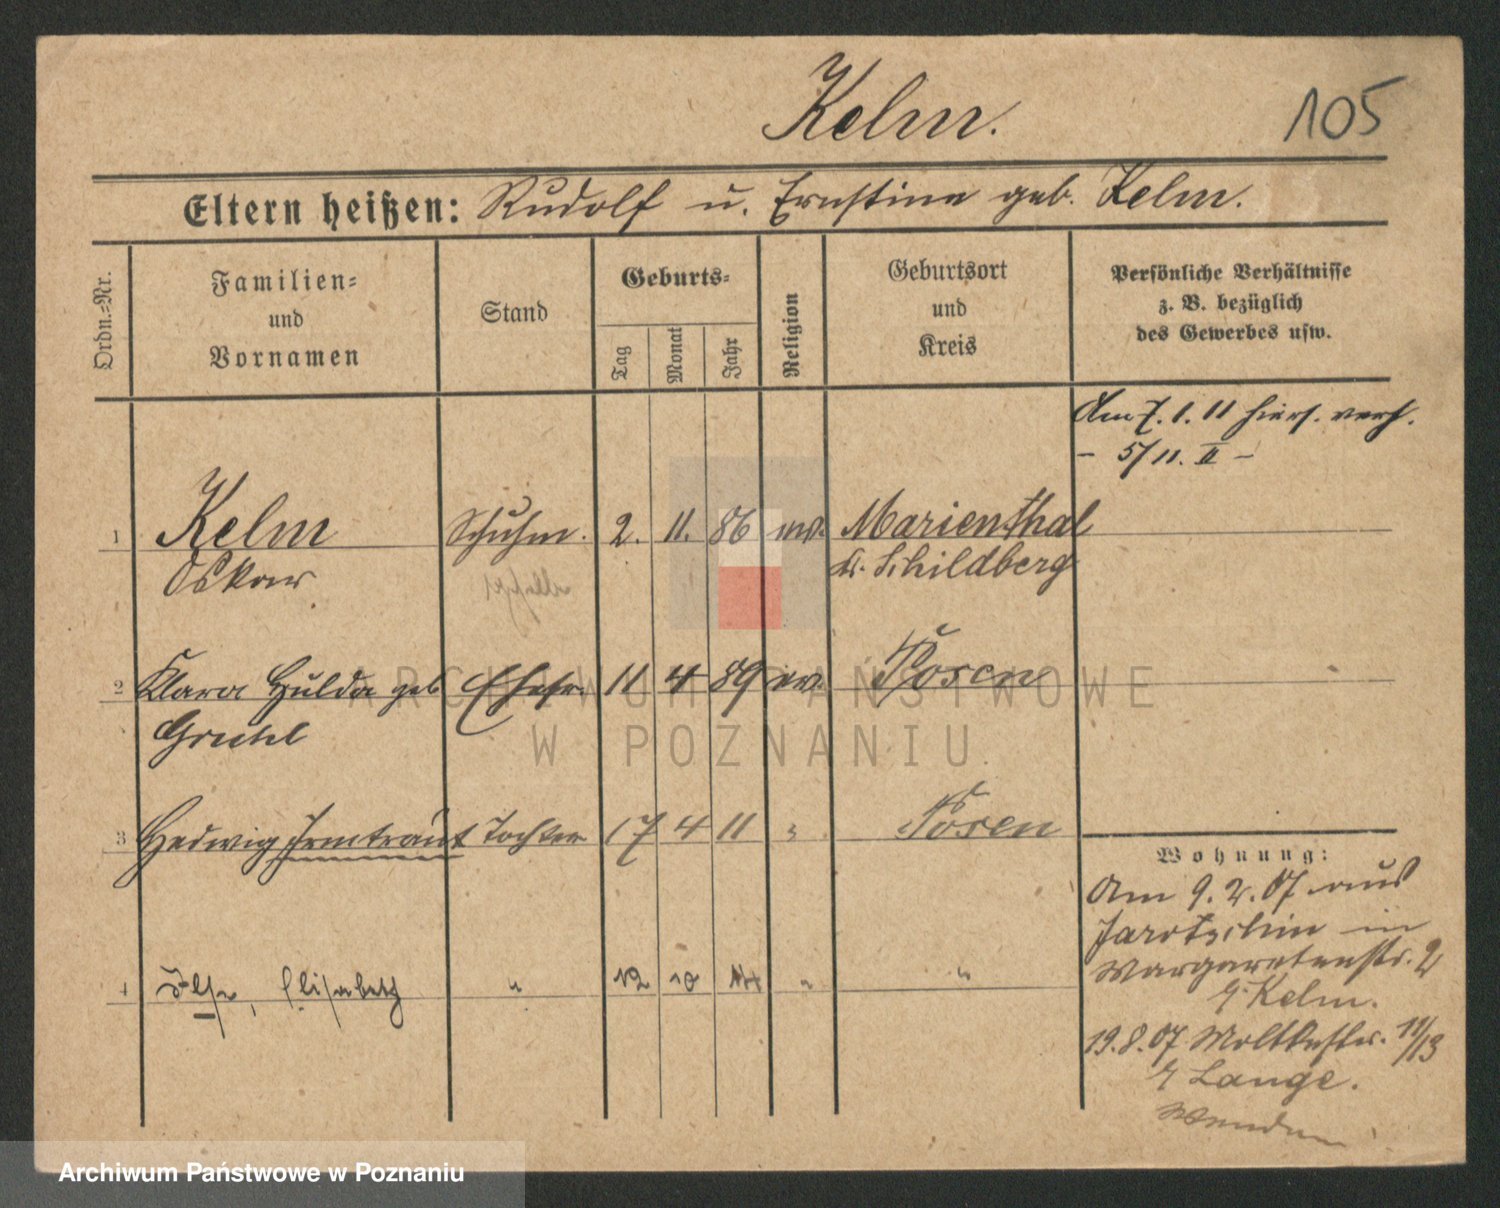 Kelm.
105
Eltern heißen: Rudolf u. Ernstine geb. Kelm.
Ordn.=Nr.
Familien=
und
Vornamen
Stand
Geburts=
Tag
Monat
Jahr
Religion
Geburtsort
und
Kreis
Persönliche Verhältnisse
z. B. bezüglich
des Gewerbes usw.
Am 7. 1. 11 hiers. verh.
– 5/11. II –
1 Kelm Schuhm. 2. 11. 86 ev. Marienthal
Oskar Kr. Schildberg
2 Klara Hulda geb Ehefr. 11 4 89 ev. Posen
3 Hedwig Irmtraut Tochter 17 4 11 " Posen
4 Ilse, Elisabeth " 12 10 14 " "
Wohnung:
Am 9. 2. 07 aus
Jarotschin in
Margaretenstr. 2
b/ Kelm.
19. 8. 07 Moltkestr. 11/13
b/ Lange.
Wenden
ARCHIWUM PAŃSTWOWE
W POZNANIU
Archiwum Państwowe w Poznaniu